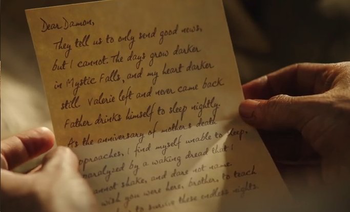 Dear Damon,
They tell us to only send good news,
but I cannot. The days grow darker
in Mystic Falls, and my heart darker
still. Valerie left and never came back
Father drinks himself to sleep nightly.
As the anniversary of mother's death
approaches, I find myself unable to sleep,
paralysed by a waking dread that I
cannot shake, and dare not name.
I wish you were here, brother, to teach
to survive these endless nights.